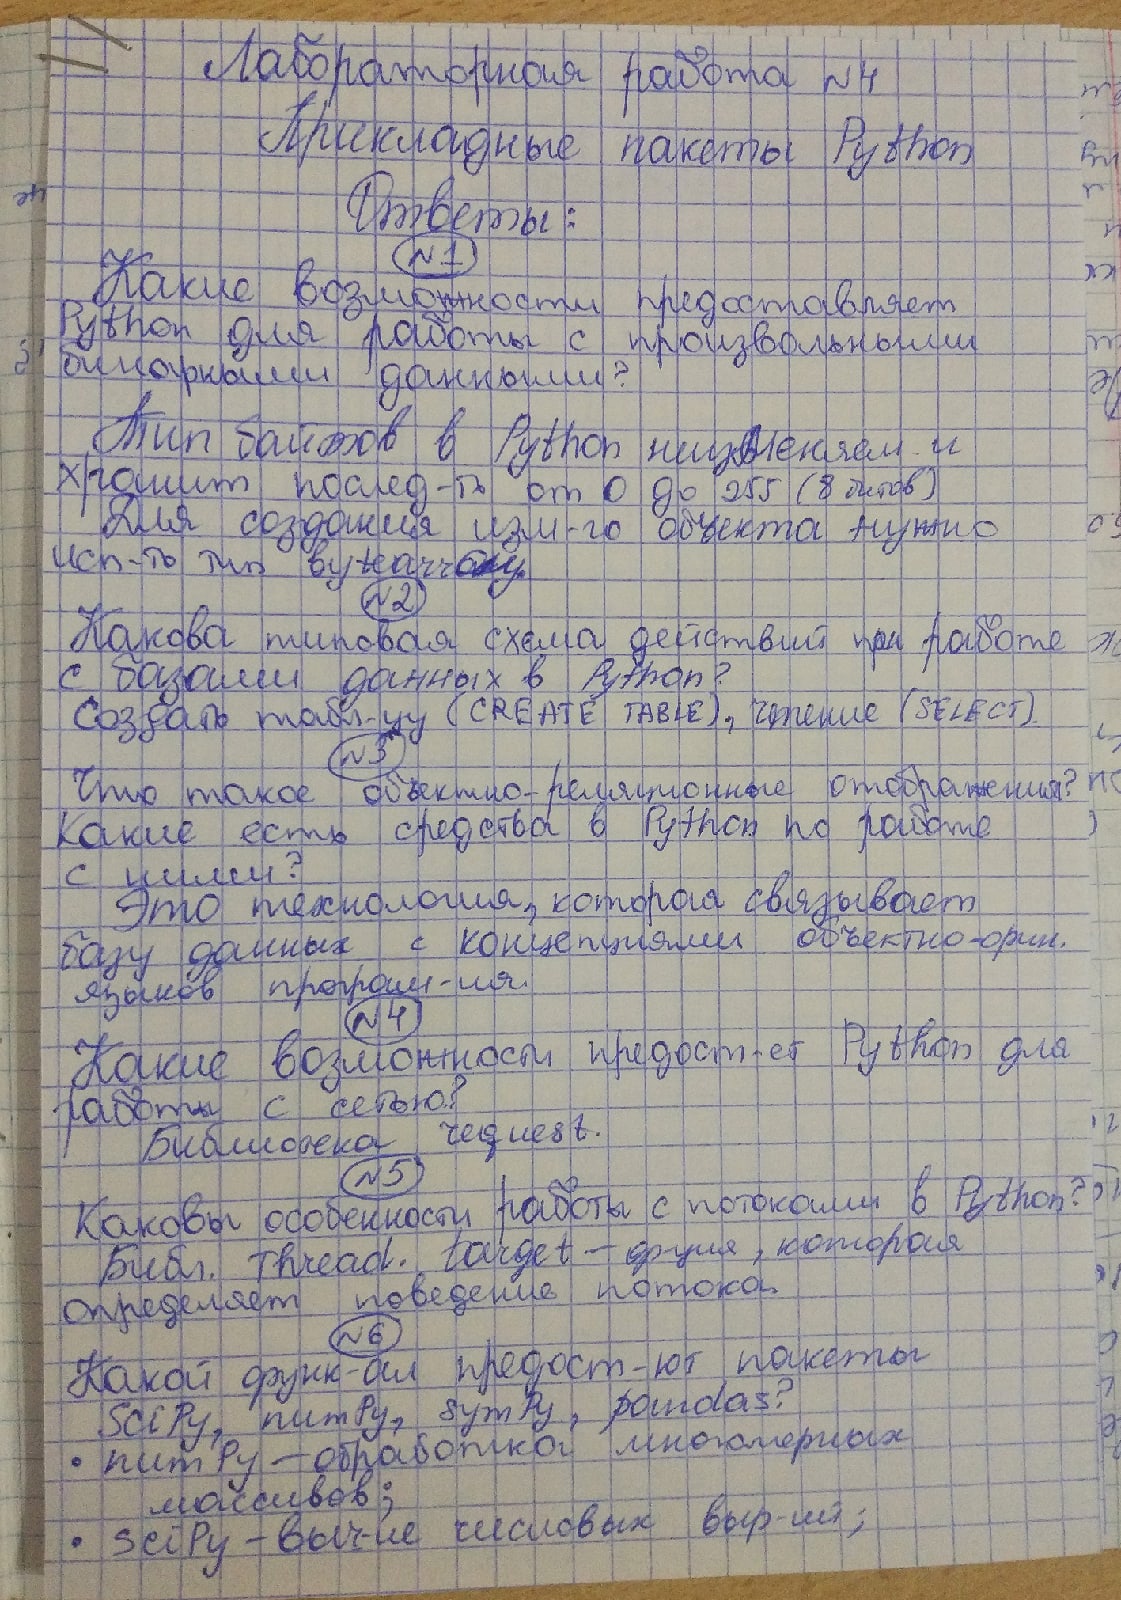 Лабораторная работа №4
Прикладные пакеты Python
Ответы:
№1
Какие возможности предоставляет
Python для работы с произвольными
бинарными данными?
Тип байтов в Python неизменяем и
хранит послед-ть от 0 до 255 (8 битов)
Для создания изм-го объекта нужно
исп-ть тип bytearray
№2
Какова типовая схема действий при работе
с базами данных в Python?
Создать табл-цу (CREATE TABLE), чтение (SELECT)
№3
Что такое объектно-реляционные отображения?
Какие есть средства в Python по работе
с ними?
Это технология, которая связывает
базу данных с концепциями объектно-ориен.
языков програм-ия.
№4
Какие возможности предост-ет Python для
работы с сетью?
Библиотека request.
№5
Каковы особенности работы с потоками в Python?
Библ. Thread. target - ф-ция, которая
определяет поведение потока.
№6
Какой функ-ал предост-ют пакеты
SciPy, numPy, symPy, pandas?
• numPy - обработка многомерных
массивов;
• SciPy - выч-ие числовых выр-ий;